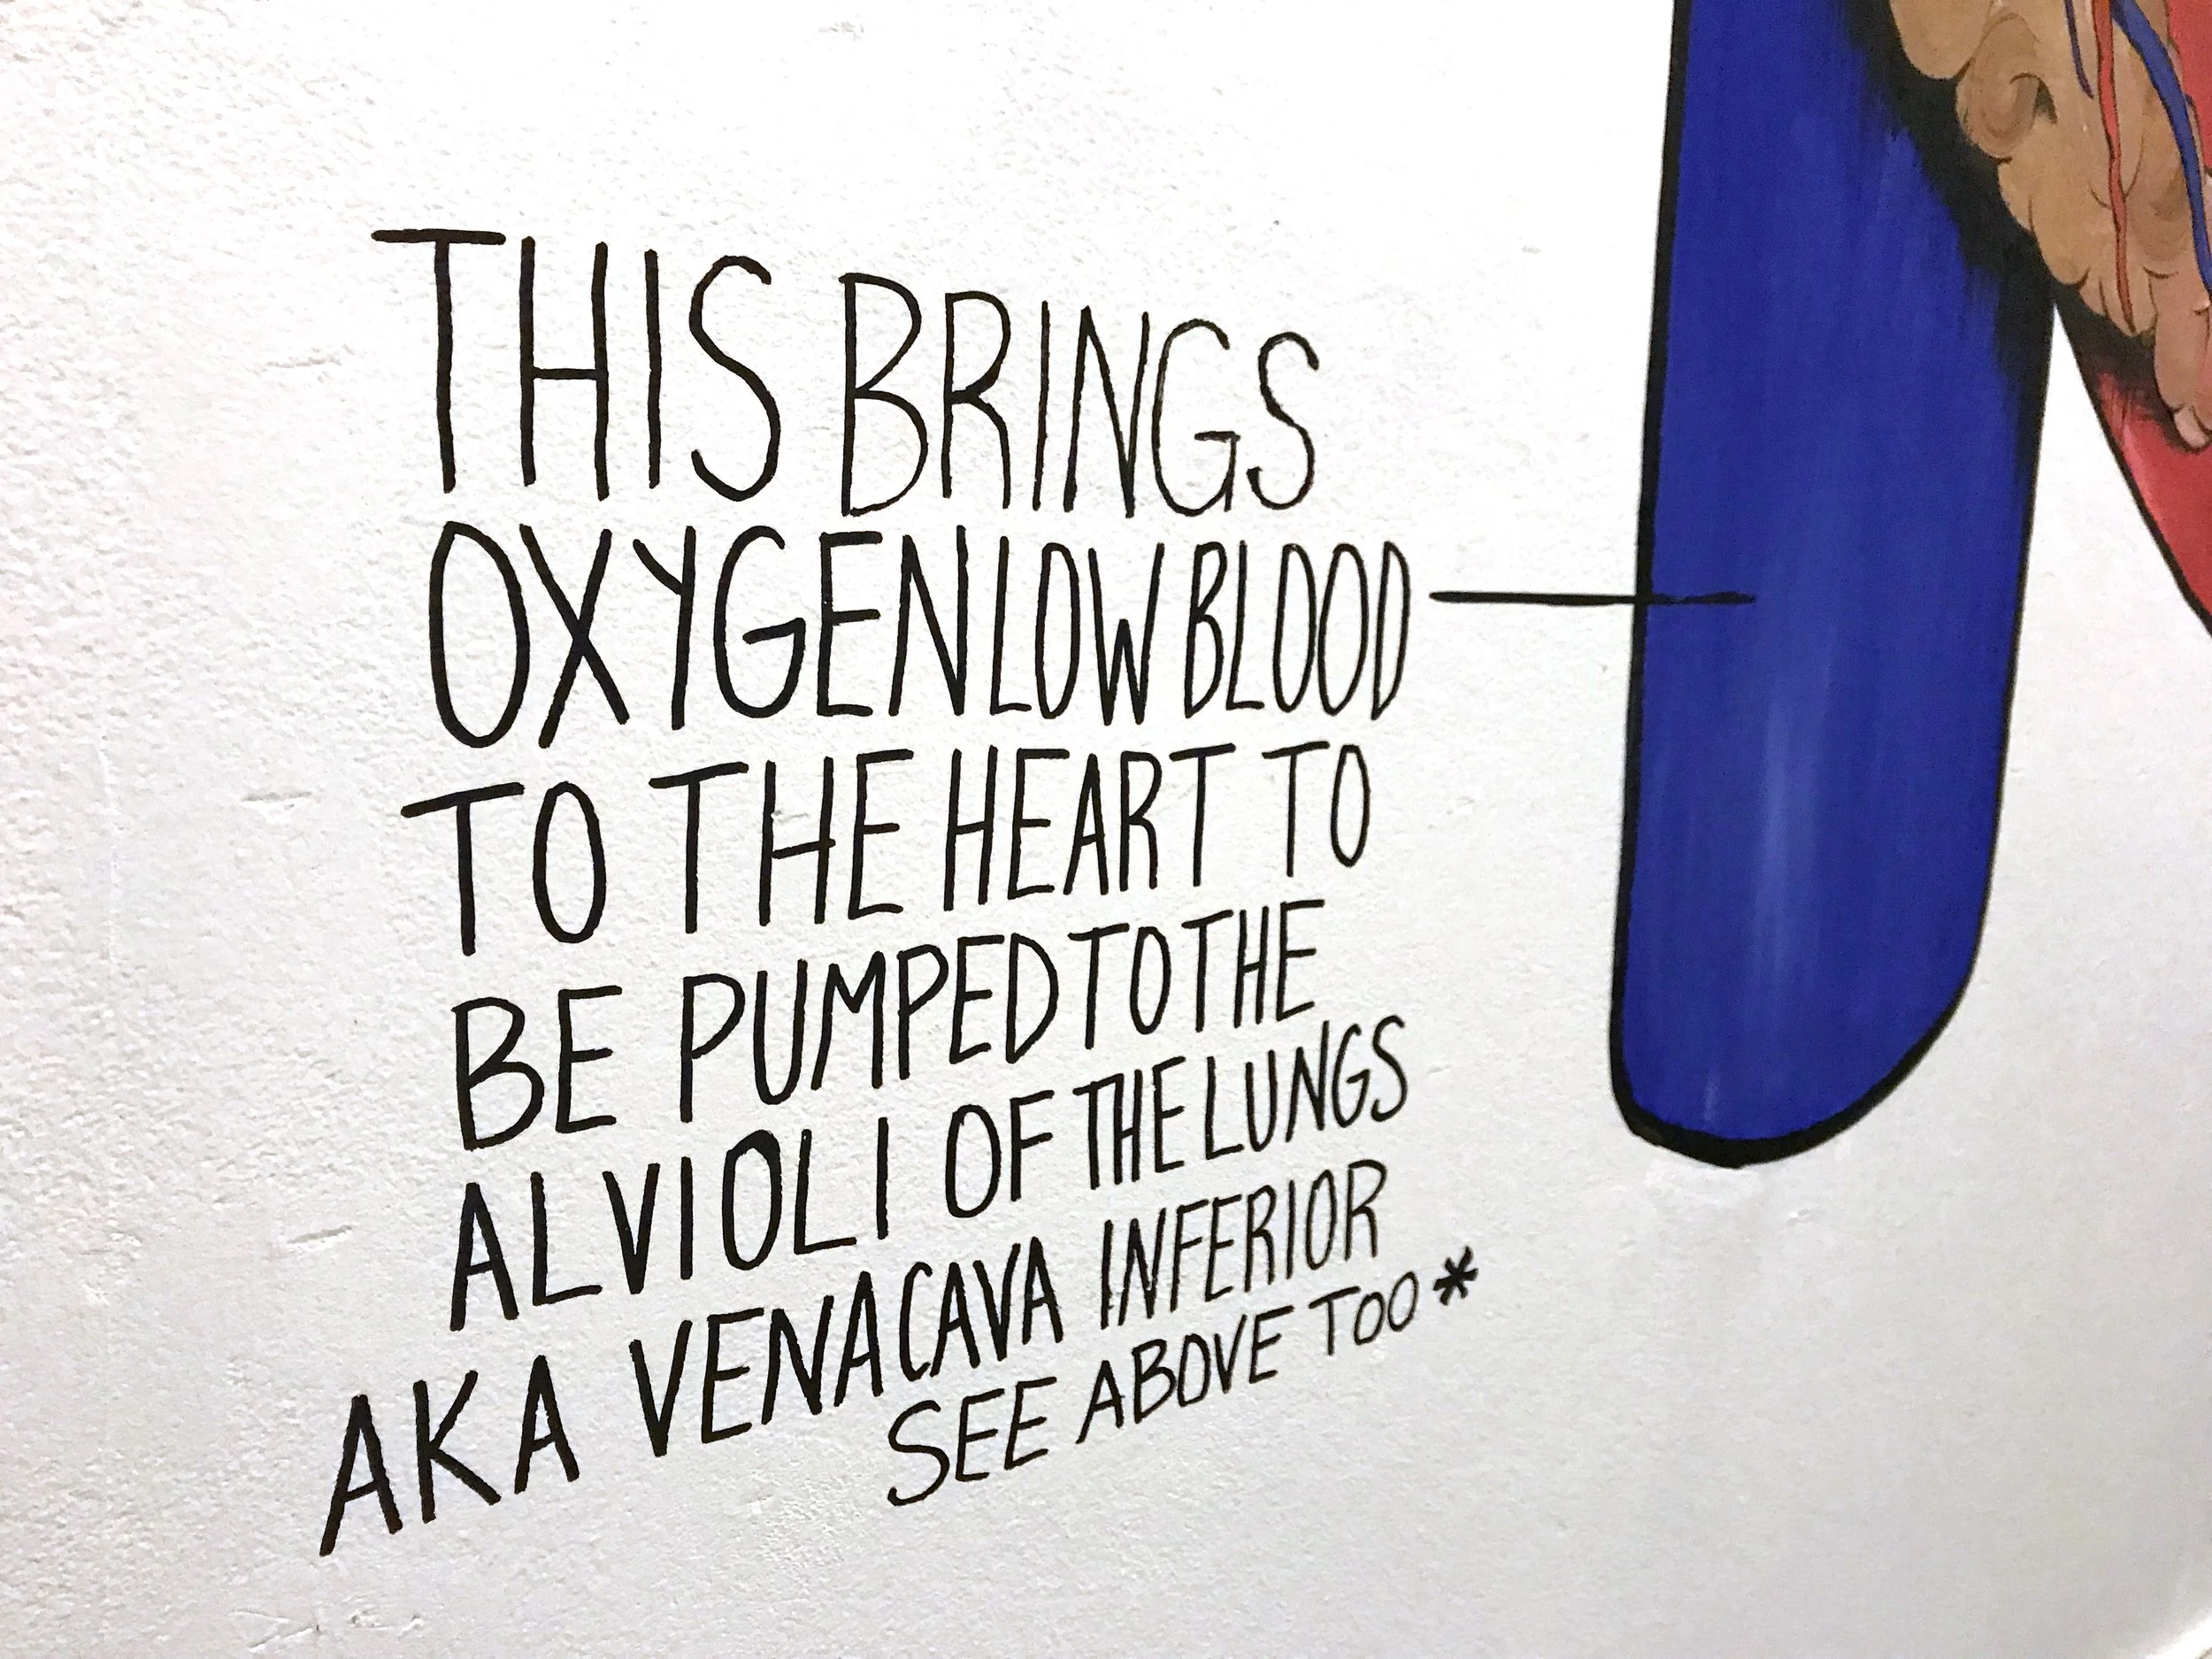 THIS BRINGS
OXYGEN LOW BLOOD
TO THE HEART TO
BE PUMPED TO THE
ALVIOLI OF THE LUNGS
AKA VENA CAVA INFERIOR
SEE ABOVE TOO *